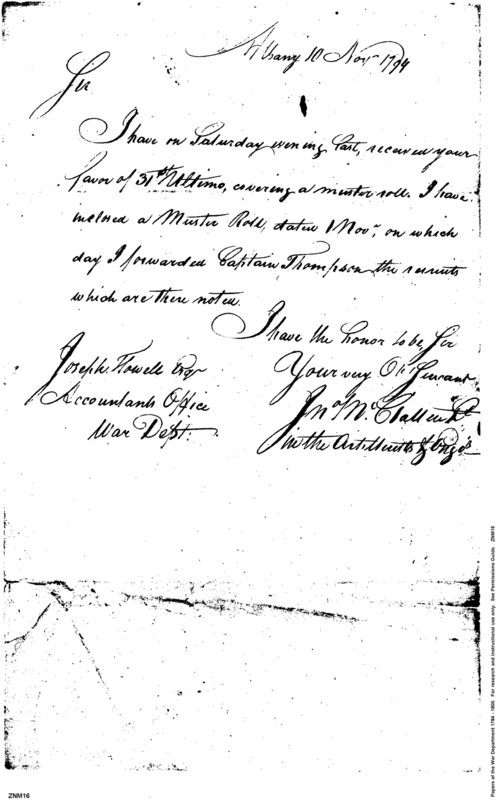 Albany 10 Novr 1794
Sir
I have on Saturday evening last, received your
favor of 31st Ultimo, covering a muster roll. I have
inclosed a Muster Roll, dated 1 Novr, on which
day I forwarded Captain Thompson the recruits
which are there noted.
I have the honor to be, Sir
Your very Ob. Servant
Jno McClallen Lt
in the Artillerists & Engrs
Joseph Howell Esqr
Accountants Office
War Dept.
ZNM16
Papers of the War Department 1784 - 1800. For research and instructional use only. See Permissions Guide. ZNM16